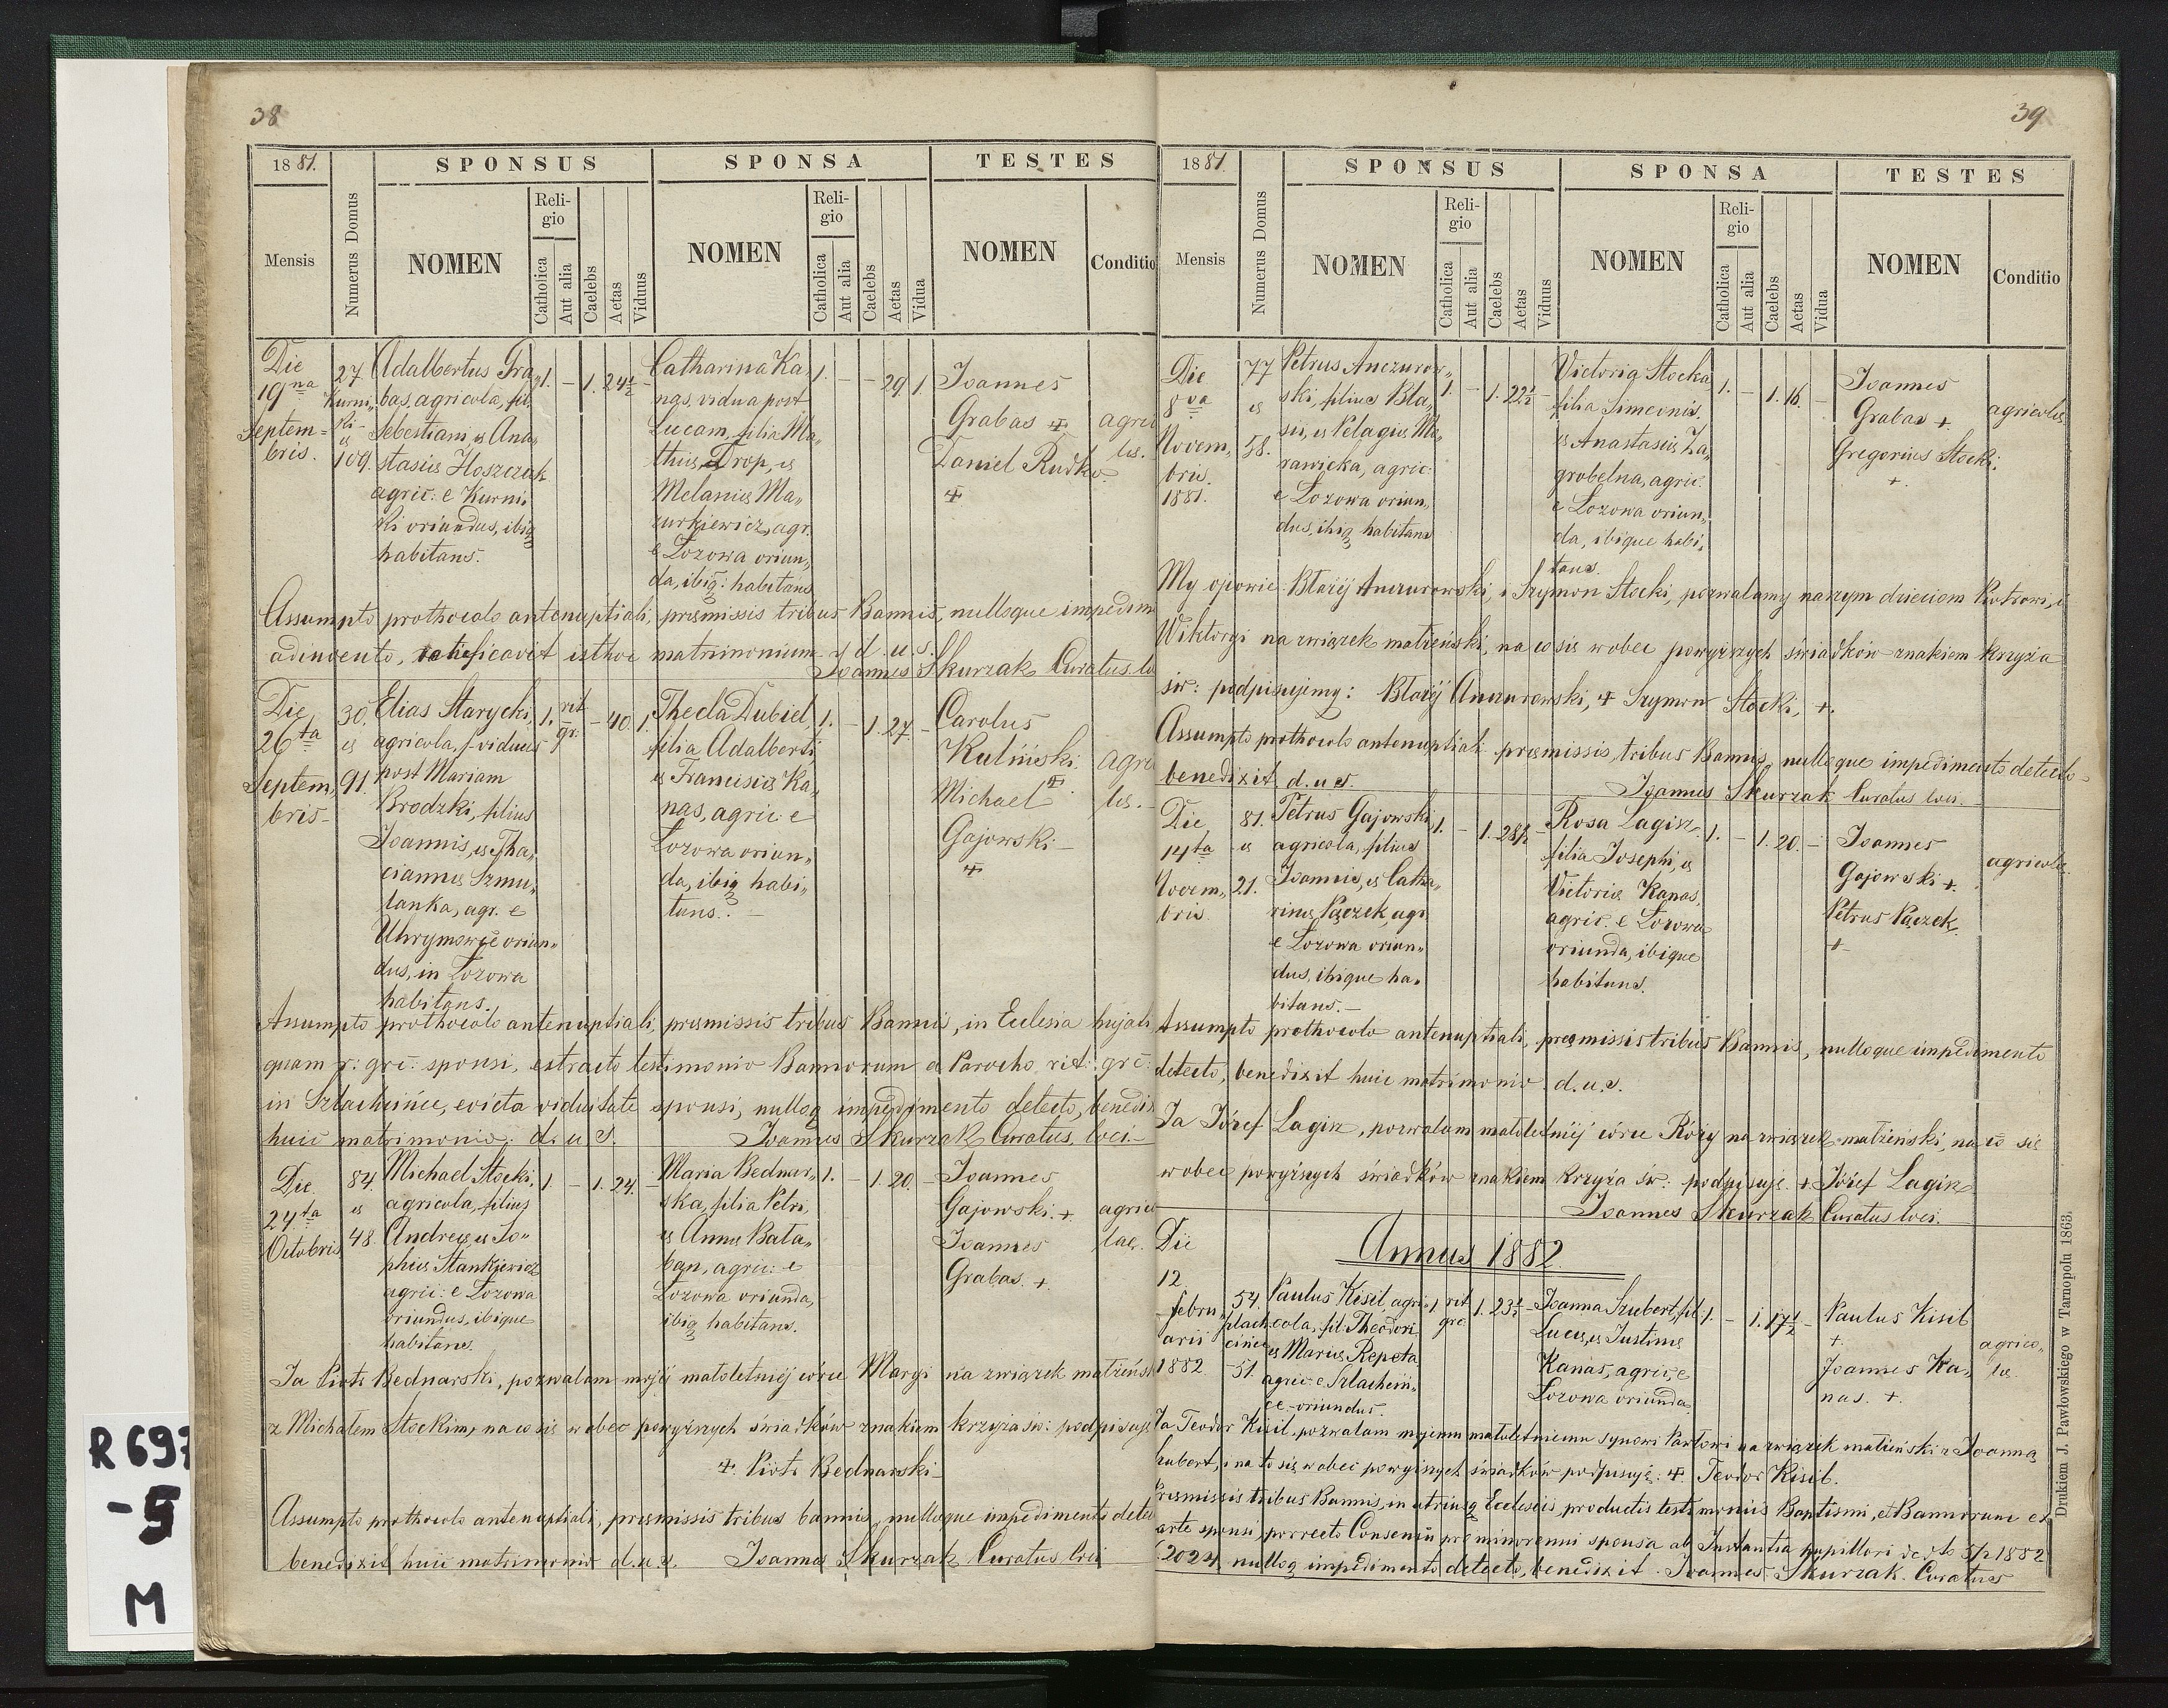 38
1881.
Mensis
Numerus Domus
SPONSUS
NOMEN
Reli-
gio
Catholica
Aut alia
Caelebs
Aetas
Viduus
SPONSA
NOMEN
Reli-
gio
Catholica
Aut alia
Caelebs
Aetas
Vidua
TESTES
NOMEN
Conditio
Die
19na
Septem=
bris.
27
Kurni„
ki
et
109.
Adalbertus Gra„
bas, agricola, fil.
Sebestiani, et Ana„
stasiæ Hoszczak
agric: e Kurni„
ki oriundus, ibiq
habitans.
1. – 1. 24½ –
Catharina Ka„
nas, vidua post
Lucam, filia Ma„
thiæ Drop, et
Melaniæ Ma„
zurkiewicz, agr.
e Łozowa oriun„
da, ibiq: habitans
1. – – 29. 1.
Joannes
Grabas +
Daniel Rudko
+
agrico
læ.
Assumpto prothocolo antenuptiali, præmissis tribus Bannis, nulloque impedim
adinvento, ratificavit isthoc matrimonium d. u. s.
Joannes Skurzak Curatus lo
Die
26ta
Septem„
bris
30.
et
91.
Elias Starycki,
agricola, viduus
post Mariam
Brodzki, filius
Joannis, et Tha„
ciannæ Szmu„
lanka, agr. e
Uhrymowce oriun„
dus, in Łozowa
habitans.
1. rit. gr. – 40. 1.
Thecla Dubiel,
filia Adalberti,
et Franciscæ Ka„
nas, agric: e
Łozowa oriun„
da, ibiq habi„
tans. –
1. – 1. 27. –
Carolus
Kuliński +
Michael
Gajowski –
+
agri
læ. –
Assumpto prothocolo antenuptiali, præmissis tribus Bannis, in Ecclesia hujati
quam r: grc: sponsi, extracto testimonio Bannorum a Parocho rit: grc:
in Szlachcińce, evicta viduitate sponsi, nulloq impedimento detecto, benedix
huic matrimonio. d. u. s. Joannes Skurzak Curatus loci. –
Die
24ta
Octobris
84.
et
48.
Michael Stocki,
agricola, filius
Andreæ, et So„
phiæ Stankiewicz
agric: e Łozowa
oriundus, ibique
habitans.
1. – 1. 24. –
Maria Bednar„
ska, filia Petri,
et Annæ Bała„
ban, agric: e
Łozowa oriunda,
ibiq habitans.
1. – 1. 20. –
Joannes
Gajowski. +
Joannes
Grabas. +
agrico
læ.
Ja Piotr Bednarski, pozwalam mojéj małoletniéj córce Maryi na związek małżeńsk
z Michałem Stockim, na co się wobec powyższych świadków znakiem krzyża św: podpisuję
+. Piotr Bednarski –
Assumpto prothocolo antenuptiali, præmissis tribus bannis, nulloque impedimento detec
benedixit huic matrimonio d. u. s. Joannes Skurzak Curatus loci
39
1881.
Mensis
Numerus Domus
SPONSUS
NOMEN
Reli-
gio
Catholica
Aut alia
Caelebs
Aetas
Viduus
SPONSA
NOMEN
Reli-
gio
Catholica
Aut alia
Caelebs
Aetas
Vidua
TESTES
NOMEN
Conditio
Die
8va
Novem„
bris.
1881.
77
et
58.
Petrus Anczurow„
ski, filius Bla„
sii, et Pelagiæ Ma„
rawicka, agric:
e Łozowa oriun„
dus, ibiq habitans
1. – 1. 22½ –
Victoria Stocka,
filia Simeonis,
et Anastasiæ Za„
grobelna, agric.
e Łozowa oriun„
da, ibique habi„
tans.
1. – 1. 16. –
Joannes
Grabas +.
Gregorius Stocki.
+
agricolæ
My ojcowie: Błażéj Anczurowski, i Szymon Stocki, pozwalamy naszym dzieciom Piotrowi, i
Wiktoryi na związek małżeński, na co się wobec powyższych świadków znakiem krzyża
św: podpisujemy: Błażéj Anczurowski, + Szymon Stocki, +.
Assumpto prothocolo antenuptiali præmissis tribus Bannis, nulloque impedimento detecto
benedixit d. u. s.
Joannes Skurzak Curatus loci.
Die
14ta
Novem„
bris
81.
et
21.
Petrus Gajowski,
agricola, filius
Joannis, et Catha„
rinæ Pączek, agr.
e Łozowa oriun„
dus, ibique ha„
bitans. –
1. – 1. 28½ –
Rosa Łagisz
filia Josephi, et
Victoriæ Kanas,
agric. e Łozowa
oriunda, ibique
habitans.
1. – 1. 20. –
Joannes
Gajowski +.
Petrus Pączek.
+
agricolæ.
Assumpto prothocolo antenuptiali, præmissis tribus Bannis, nulloque impedimento
detecto, benedixit huic matrimonio d. u. s.
Ja Józef Łagisz, pozwalam małoletniéj córce Róży na związek małżeński, na co się
wobec powyższych świadków znakiem krzyża św: podpisuję. + Józef Łagisz
Joannes Skurzak Curatus loci.
Annus 1882.
Die
12.
febru
arii
1882
54.
Szlach
cińce
51.
Paulus Kisil, agri„
cola, fil. Theodori,
et Mariæ Repeta
agric. e Szlachciń„
ce oriundus.
1. rit grc. 1. 23½ –
Joanna Szubert, fil.
Lucæ, et Justinæ
Kanas, agric, e
Łozowa oriunda.
1. – 1. 17½ –
Paulus Kisil
+.
Joannes Ka„
nas. +.
agrico„
læ
Ja Teodor Kisil, pozwalam mojemu małoletniemu synowi Pawłowi na związek małżeński z Joanną
zubert, i na to się wobec powyższych świadków podpisuję: + Teodor Kisil.
Præmissis tribus Bannis, in utriusq Ecclesiis productis testimoniis Baptismi, et Bannorum ex
parte sponsi, porrecto Consensu pro minorenni sponsa ab Instantia pupillari de dto 5/2 1882
2024 nulloq impedimento detecto, benedixit. Joannes Skurzak. Curatus
Drukiem J. Pawłowskiego w Tarnopolu 1863.
R 697
-5
M